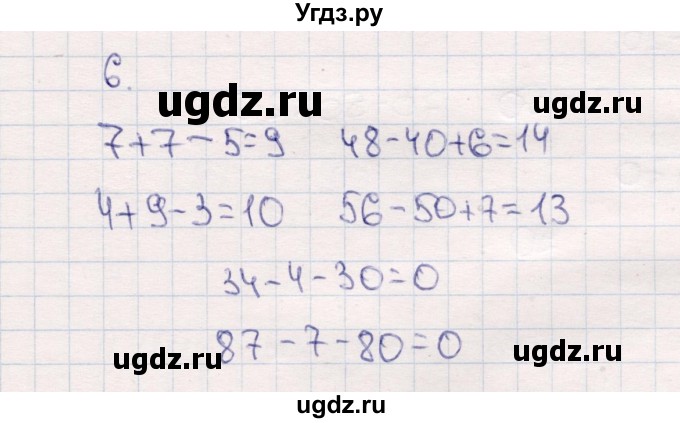 Угдз.ру
6.
ugdz.ru
7+7-5=9 48-40+6=14
4+9-3=10 56-50+7=13
34-4-30=0
87-7-80=0
ugdz.ru ugdz.ru
ugdz.ru